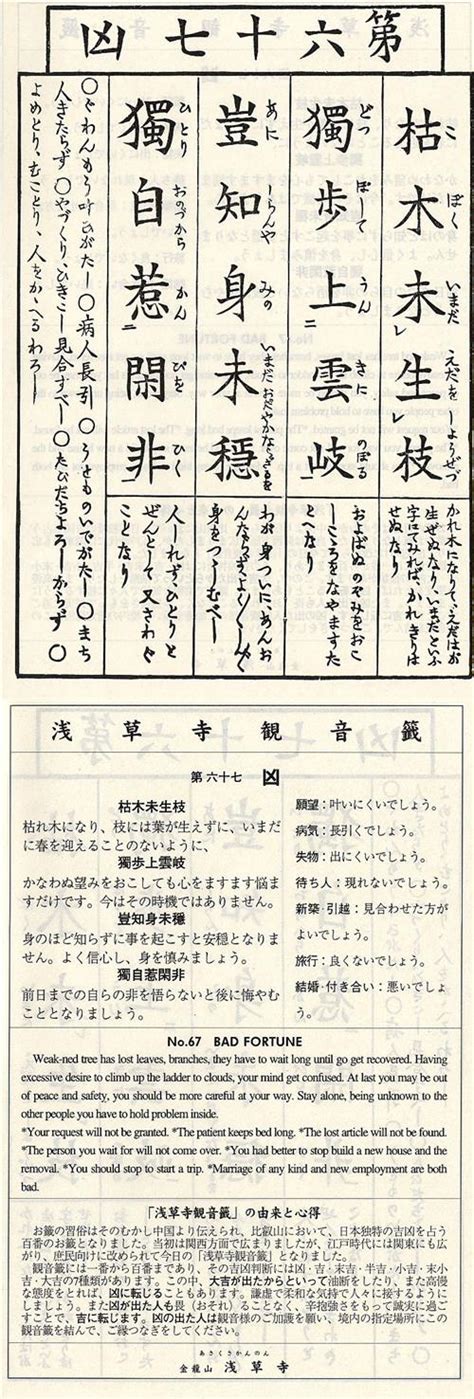 第六十七 凶
枯木未生枝
こ ぼく いまだ えだを しょうぜず
かれ木になりて、えだはが
生ぜぬなり、いまだといふ
字にてみれば、かれきりは
せぬなり
獨歩上雲岐
どつ ぽして うん きに のぼる
およばぬのぞみをおこ
しこころをなやますた
とへなり
豈知身未穏
あに しらんや みの いまだ おだやかならざるを
わが身ついに、あんお
身をつつしむべし
獨自惹閑非
ひとり おのづから かん ぴを ひく
人しれず、ひとりと
ぜんとして又さわぐ
ことなり
○ぐわんもう叶ひがたし○病人長引○うせものいでがたし○まち
人きたらず○やづくり、ひきこし見合すべし○たびだちよろしからず○
よめとり、むことり、人をかゝへるわろし
浅草寺観音籤
第六十七 凶
枯木未生枝
枯れ木になり、枝には葉が生えずに、いまだ
に春を迎えることのないように、
獨歩上雲岐
かなわぬ望みをおこしても心をますます悩ま
すだけです。今はその時機ではありません。
豈知身未穏
身のほど知らずに事を起こすと安穏となりま
せん。よく信心し、身を慎みましょう。
獨自惹閑非
前日までの自らの非を悟らないと後に悔やむ
こととなりましょう。
願望：叶いにくいでしょう。
病気：長引くでしょう。
失物：出にくいでしょう。
待ち人：現れないでしょう。
新築・引越：見合わせた方が
よいでしょう。
旅行：良くないでしょう。
結婚・付き合い：悪いでしょ
う。
No.67 BAD FORTUNE
Weak-ned tree has lost leaves, branches, they have to wait long until go get recovered. Having
excessive desire to climb up the ladder to clouds, your mind get confused. At last you may be out
of peace and safety, you should be more careful at your way. Stay alone, being unknown to the
other people you have to hold problem inside.
*Your request will not be granted. *The patient keeps bed long. *The lost article will not be found.
*The person you wait for will not come over. *You had better to stop build a new house and the
removal. *You should stop to start a trip. *Marriage of any kind and new employment are both
bad.
「浅草寺観音籤」の由来と心得
お籤の習俗はそのむかし中国より伝えられ、比叡山において、日本独特の吉凶を占う
百番のお籤となりました。当初は関西方面で広まりましたが、江戸時代には関東にも広
がり、庶民向けに改められて今日の「浅草寺観音籤」となりました。
観音籤には一番から百番まであり、その吉凶判断には凶・吉・末吉・半吉・小吉・末小
吉・大吉の7種類があります。この中、大吉が出たからといって油断をしたり、また高慢
な態度をとれば、凶に転じることもあります。謙虚で柔和な気持で人々に接するように
しましょう。また凶が出た人も畏（おそれ）ることなく、辛抱強さをもって誠実に過ご
すことで、吉に転じます。凶の出た人は観音様のご加護を願い、境内の指定場所にこの
観音籤を結んで、ご縁つなぎをしてください。
あさくさかんのん
金龍山 浅草寺